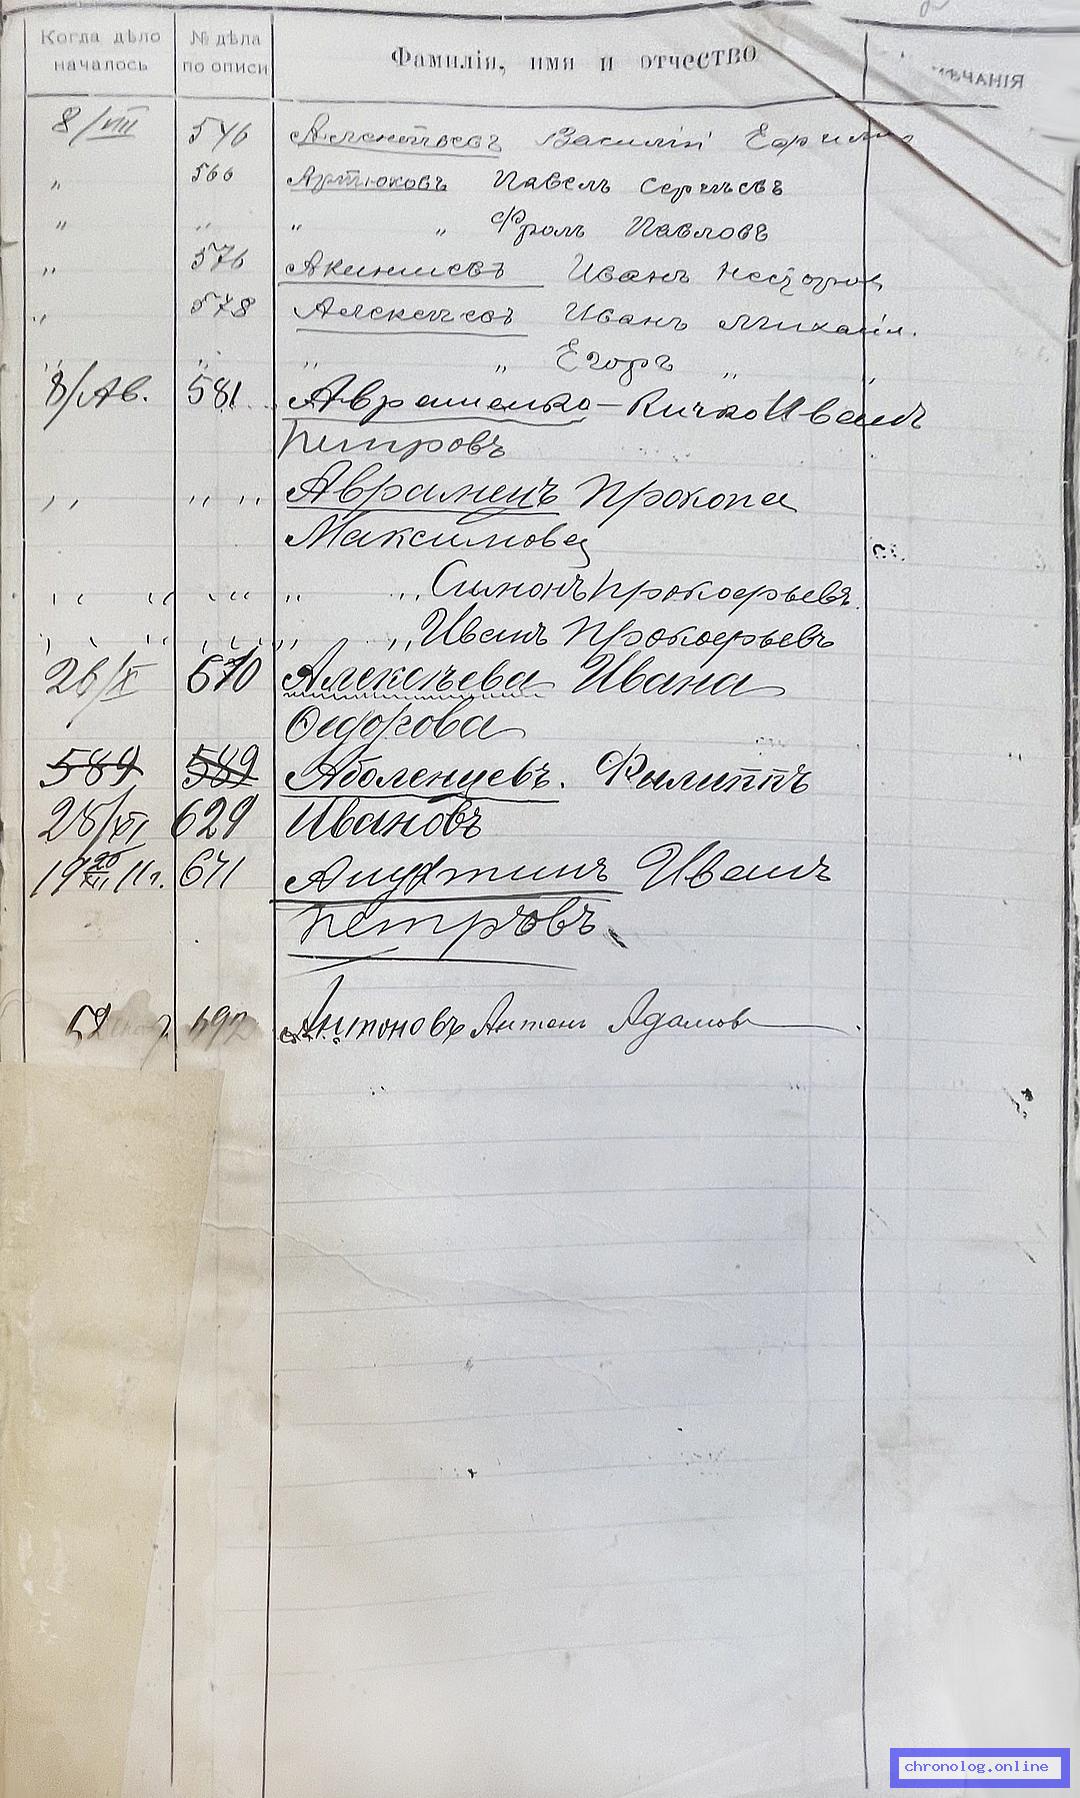 Когда дѣло началось № дѣла по описи Фамилія, имя и отчество ЧАНІЯ
8/VIII 546 Василій
" 566 Артюковъ Павелъ Сергѣевъ
" " " " Фролъ Павловъ
" 576 Иванъ Несторов
" 578 Алексѣевъ Иванъ Михайл.
" " " " Егоръ " "
8/Ав. 581 Иванъ
Петровъ
" " " Аврамецъ Прокопа
Максимова
" " " " " Симонъ Прокофьевъ
" " " " " Иванъ Прокофьевъ
26/X 610 Алексѣева Ивана
Ѳедорова
589 589 Аболенцевъ. Филиппъ
28/XI 629 Ивановъ
19 20/XII 11 г. 671 Иванъ
Петровъ
52 592 Антоновъ Антонъ Адамов
chronolog.online